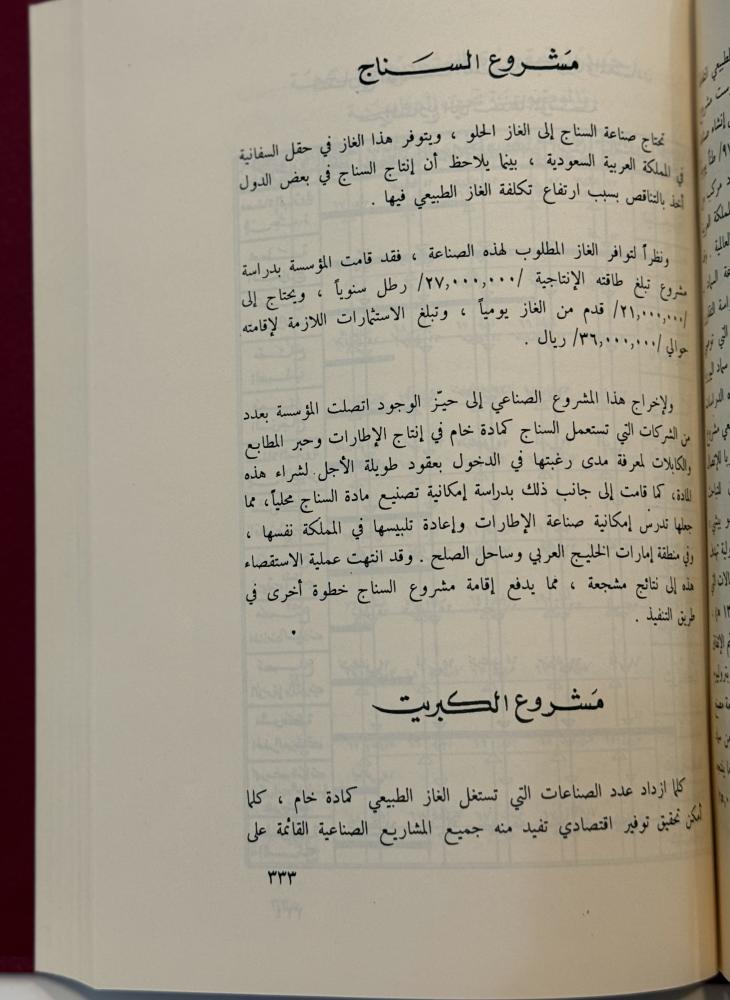 مشروع السناج
تحتاج صناعة السناج إلى الغاز الحلو ، ويتوفر هذا الغاز في حقل السفانية
في المملكة العربية السعودية ، بينما يلاحظ أن إنتاج السناج في بعض الدول
أخذ بالتناقص بسبب ارتفاع تكلفة الغاز الطبيعي فيها .
ونظراً لتوافر الغاز المطلوب لهذه الصناعة ، فقد قامت المؤسسة بدراسة
مشروع تبلغ طاقته الإنتاجية /٢٧,٠٠٠,٠٠٠/ رطل سنوياً ، ويحتاج إلى
/٢١,٠٠٠,٠٠٠/ قدم من الغاز يومياً ، وتبلغ الاستثمارات اللازمة لإقامته
حوالي /٣٦,٠٠٠,٠٠٠/ ريال .
ولإخراج هذا المشروع الصناعي إلى حيّز الوجود اتصلت المؤسسة بعدد
من الشركات التي تستعمل السناج كمادة خام في إنتاج الإطارات وحبر المطابع
والكابلات لمعرفة مدى رغبتها في الدخول بعقود طويلة الأجل لشراء هذه
المادة، كما قامت إلى جانب ذلك بدراسة إمكانية تصنيع مادة السناج محلياً، مما
جعلها تدرس إمكانية صناعة الإطارات وإعادة تلبيسها في المملكة نفسها ،
وفي منطقة إمارات الخليج العربي وساحل الصلح . وقد انتهت عملية الاستقصاء
هذه إلى نتائج مشجعة ، مما يدفع إقامة مشروع السناج خطوة أخرى في
طريق التنفيذ .
مشروع الكبريت
كلما ازداد عدد الصناعات التي تستغل الغاز الطبيعي كمادة خام ، كلما
أمكن تحقيق توفير اقتصادي تفيد منه جميع المشاريع الصناعية القائمة على
٣٣٣